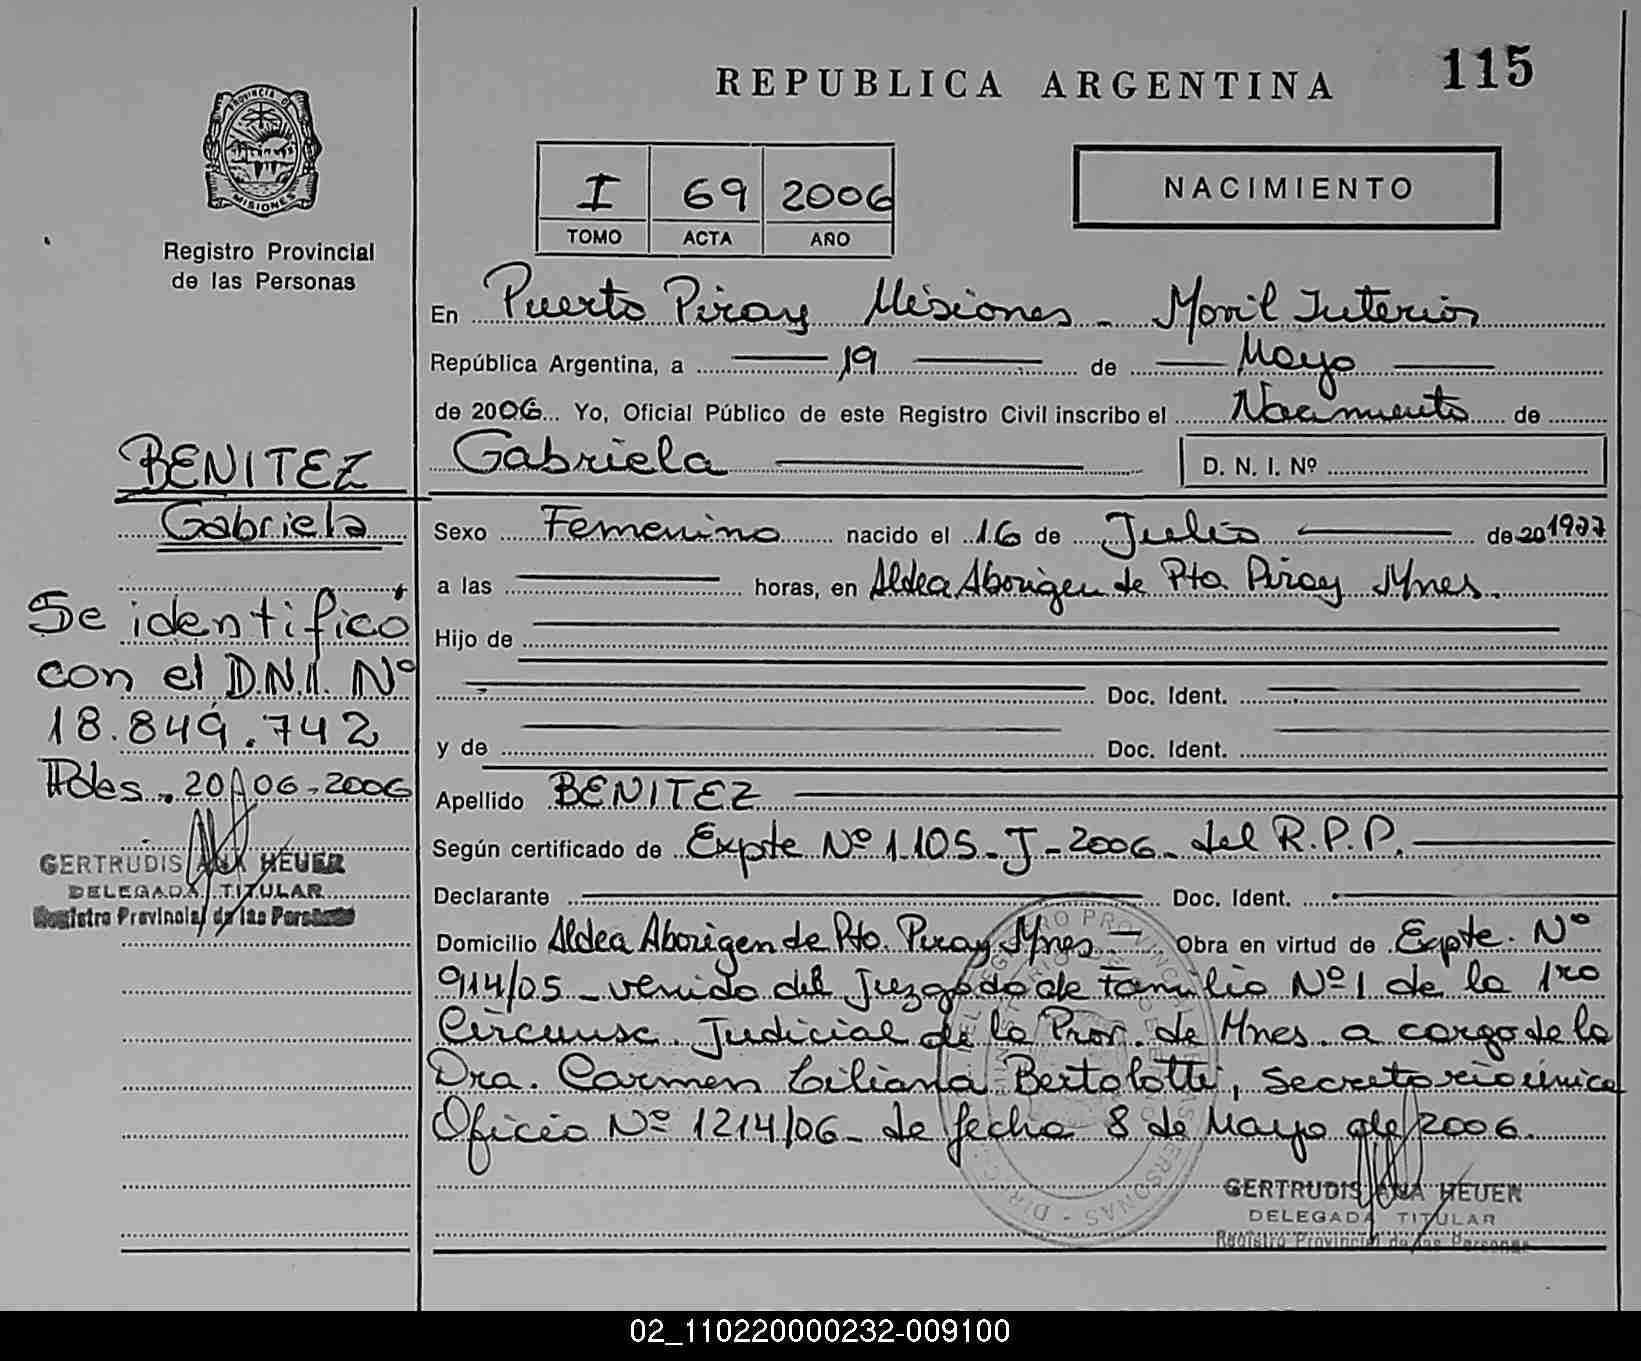 REPUBLICA ARGENTINA
115
PROVINCIA D
MISIONES
Registro Provincial
de las Personas
I 69 2006
TOMO ACTA AÑO
NACIMIENTO
En Puerto Piray Misiones - Movil Interior
República Argentina, a 19 de Mayo
de 2006 Yo, Oficial Público de este Registro Civil inscribo el Nacimiento de
Gabriela
D. N. I. Nº
BENITEZ
Gabriela
Se identificó
con el D.N.I. Nº
18.849.742
20-06-2006
GERTRUDIS ANA HEUER
DELEGADA TITULAR
Registro Provincial de las Personas
Sexo Femenino nacido el 16 de Julio de 20 1977
a las horas, en Aldea Aborigen de Pto. Piray Mnes.
Hijo de
Doc. Ident.
y de Doc. Ident.
Apellido BENITEZ
Según certificado de Expte Nº 1.105-J-2006- del R.P.P.
Declarante Doc. Ident.
Domicilio Aldea Aborigen de Pto. Piray Mnes - Obra en virtud de Expte. Nº
914/05 - venido del Juzgado de Familia Nº 1 de la 1ro
Circunsc. Judicial de la Prov. de Mnes. a cargo de la
Dra. Carmen Liliana Bertolotti, secretario única
Oficio Nº 1214/06- de fecha 8 de Mayo de 2006.
GERTRUDIS ANA HEUER
DELEGADA TITULAR
Registro Provincial de las Personas
02_110220000232-009100